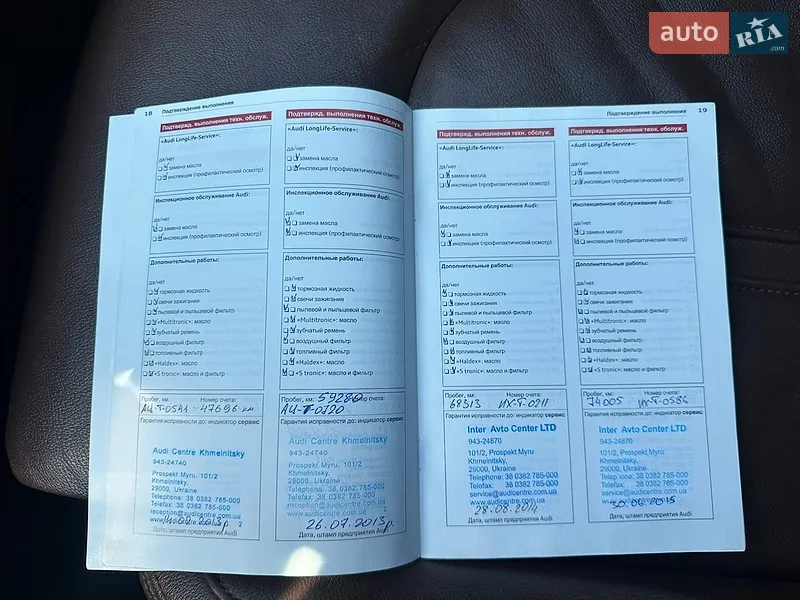 auto RIA .com
18 Подтверждение выполнения
Подтвержд. выполнения техн. обслуж.
«Audi LongLife-Service»:
да/нет
замена масла
инспекция (профилактический осмотр)
Инспекционное обслуживание Audi:
да/нет
замена масла
инспекция (профилактический осмотр)
Дополнительные работы:
да/нет
тормозная жидкость
свечи зажигания
пылевой и пыльцевой фильтр
«Multitronic»: масло
зубчатый ремень
воздушный фильтр
топливный фильтр
«Haldex»: масло
«S tronic»: масло и фильтр
Пробег, км: Номер счета:
АЦ-Т-0541 47696 км
Гарантия исправности до: индикатор сервис
Audi Centre Khmelnitsky
943-24740
Prospekt Myru, 101/2
Khmelnitsky,
29000, Ukraine
Telephone: 38 0382 785-000
Telefax: 38 0382 785-000
reception@audicentre.com.ua
www.audicentre.com.ua 2
2013р
Дата, штамп предприятия Audi
Подтвержд. выполнения техн. обслуж.
«Audi LongLife-Service»:
да/нет
замена масла
инспекция (профилактический осмотр)
Инспекционное обслуживание Audi:
да/нет
замена масла
инспекция (профилактический осмотр)
Дополнительные работы:
да/нет
тормозная жидкость
свечи зажигания
пылевой и пыльцевой фильтр
«Multitronic»: масло
зубчатый ремень
воздушный фильтр
топливный фильтр
«Haldex»: масло
«S tronic»: масло и фильтр
Пробег, км: 59280 Номер счета:
АЦ-Т-0720
Гарантия исправности до: индикатор сервис
Audi Centre Khmelnitsky
943-24740
Prospekt Myru, 101/2
Khmelnitsky,
29000, Ukraine
Telephone: 38 0382 785-000
Telefax: 38 0382 785-000
reception@audicentre.com.ua
www.audicentre.com.ua 2
26.07.2013р.
Дата, штамп предприятия Audi
Подтверждение выполнения 19
Подтвержд. выполнения техн. обслуж.
«Audi LongLife-Service»:
да/нет
замена масла
инспекция (профилактический осмотр)
Инспекционное обслуживание Audi:
да/нет
замена масла
инспекция (профилактический осмотр)
Дополнительные работы:
да/нет
тормозная жидкость
свечи зажигания
пылевой и пыльцевой фильтр
«Multitronic»: масло
зубчатый ремень
воздушный фильтр
топливный фильтр
«Haldex»: масло
«S tronic»: масло и фильтр
Пробег, км: Номер счета:
68313 ИХ-Т-0211
Гарантия исправности до: индикатор сервис
Inter Avto Center LTD
943-24870
101/2, Prospekt Myru
Khmelnitsky,
29000, Ukraine
Telephone: 38 0382 785-000
Telefax: 38 0382 785-000
service@audicentre.com.ua
www.audicentre.com.ua
28.08.2014
Дата, штамп предприятия Audi
Подтвержд. выполнения техн. обслуж.
«Audi LongLife-Service»:
да/нет
замена масла
инспекция (профилактический осмотр)
Инспекционное обслуживание Audi:
да/нет
замена масла
инспекция (профилактический осмотр)
Дополнительные работы:
да/нет
тормозная жидкость
свечи зажигания
пылевой и пыльцевой фильтр
«Multitronic»: масло
зубчатый ремень
воздушный фильтр
топливный фильтр
«Haldex»: масло
«S tronic»: масло и фильтр
Пробег, км: Номер счета:
74005 ИХ-Т-0586
Гарантия исправности до: индикатор сервис
Inter Avto Center LTD
943-24870
101/2, Prospekt Myru
Khmelnitsky,
29000, Ukraine
Telephone: 38 0382 785-000
Telefax: 38 0382 785-000
service@audicentre.com.ua
www.audicentre.com.ua
30.06.2015
Дата, штамп предприятия Audi